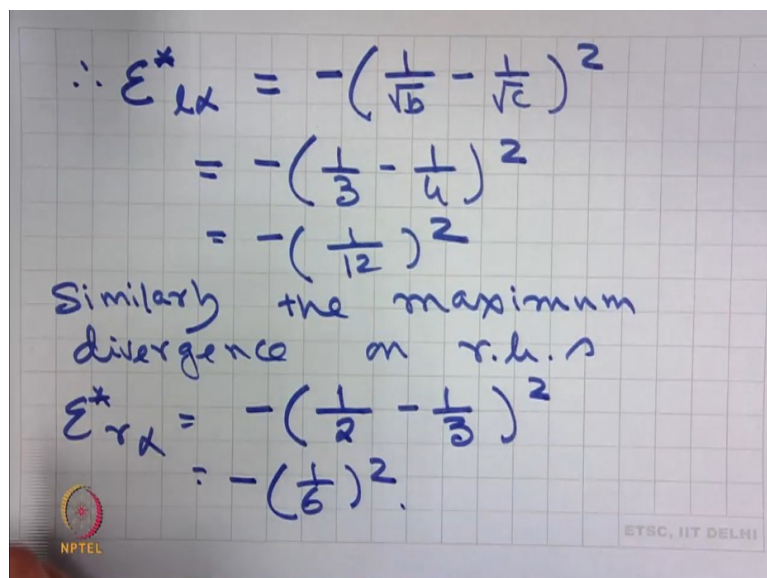 ∴ ε*lα = -(1/√b - 1/√c)²
= -(1/3 - 1/4)²
= -(1/12)²
Similarly the maximum
divergence on r.h.s
ε*rα = -(1/2 - 1/3)²
= -(1/6)².
NPTEL
ETSC, IIT DELHI